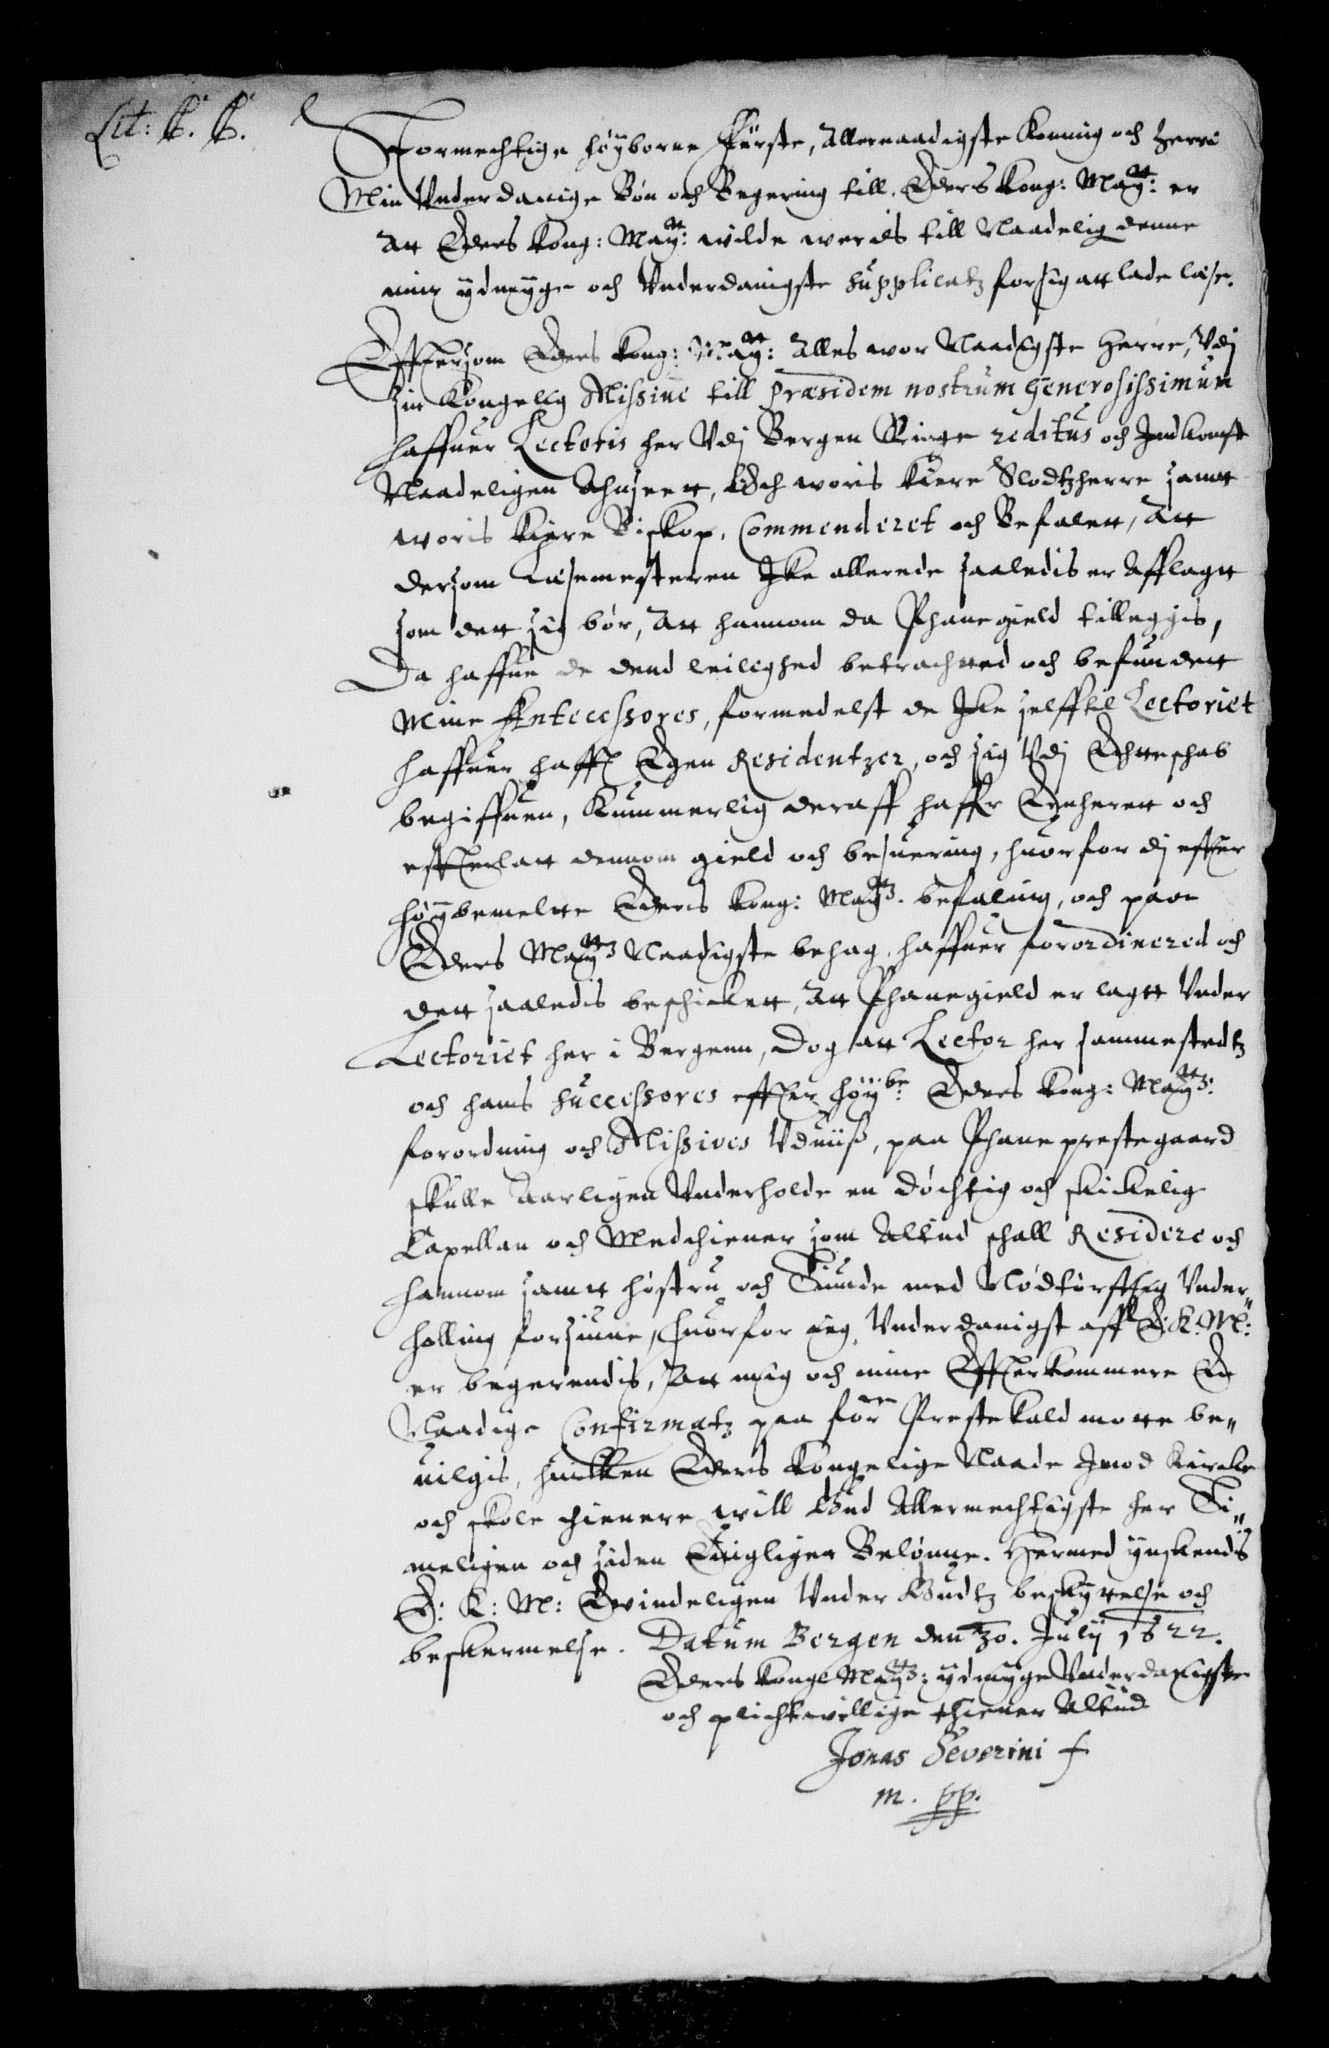 Lit: B. B.
Formechtige høyborne Fürste, Allernaadigste Konning och herre
Min Vnderdanige Bøn och Begering till Eders kong: May:tt er
att Eders kong: May:tt wilde werdis till Naadelig denne
min ydmyge och Vnderdanigste supplicatz for sig att lade læse.
Effthersom Eders kong: May:tt Alles wor Naadigste Herre, Vdj
sin Kongelig Missiue till Præsidem nostrum Generosissimum
haffuer Lectoris her Vdj Bergen Ringe reditus och Indkomst
Naadeligen Ahnseett, Och woris kiere Slodtzherre sampt
woris kiere Biskop, Commenderet och Befalett, Att
dersom Læsemesteren Ike allerede saaledis er Afflagtt
som dett sig bør, Att hannom da Phanegield tilleggis,
Da haffue de dend leiligshed betrachted och befundett
Mine Antecessores, formedelst de Ike selff til Lectoriet
haffuer hafft Egen Residentzer, och sig Vdj Echteschab
begiffuen, Kummerlig deraff haffr Ernherett och
effterlatt dennom gield och besuering, huorfor dj effter
høybemelte Eders kong: May:ttz befaling, och paa
Eders May:ttz Naadigste behag, haffuer forordinered och
dett saaledis beschickett, Att Phanegield er lagtt Vnder
Lectoriet her i Bergenn, Dog att Lector her sammestedtz
och hans successores effter høybe: Eders kong: May:ttz:
forordning och Missives Vduiiß, paa Phane prestegaard
skulle Aarligen Vnderholde en døchtig och skickelig
Capellan och Medthiener som Altid schall Residere och
hannom sampt høstru och Børn med Nødtørfftig Vnder„
holling forsiune, huorfor ieg Vnderdanigst aff E: K. M:
er begerendis, Att mig och mine Effterkommere En
Naadige Confirmatz paa for:ne Prestekald motte be„
uilgis, huilken Eders Kongelige Naade Imod Kircke
och skole thienere will Gud Allermechtigste her Ti„
meligen och siden Euigligen Belønne. Hermed ynskendis
E: K: M: Ewindeligen Vnder Gudtz beskyttelse och
beskermelse. Datum Bergen den 30. Julij 1622.
Eders kong: May:ttz: ydmyge Vnderdanigste
och plichtwillige thiener Altid
Jonas Severini f
m. pp.